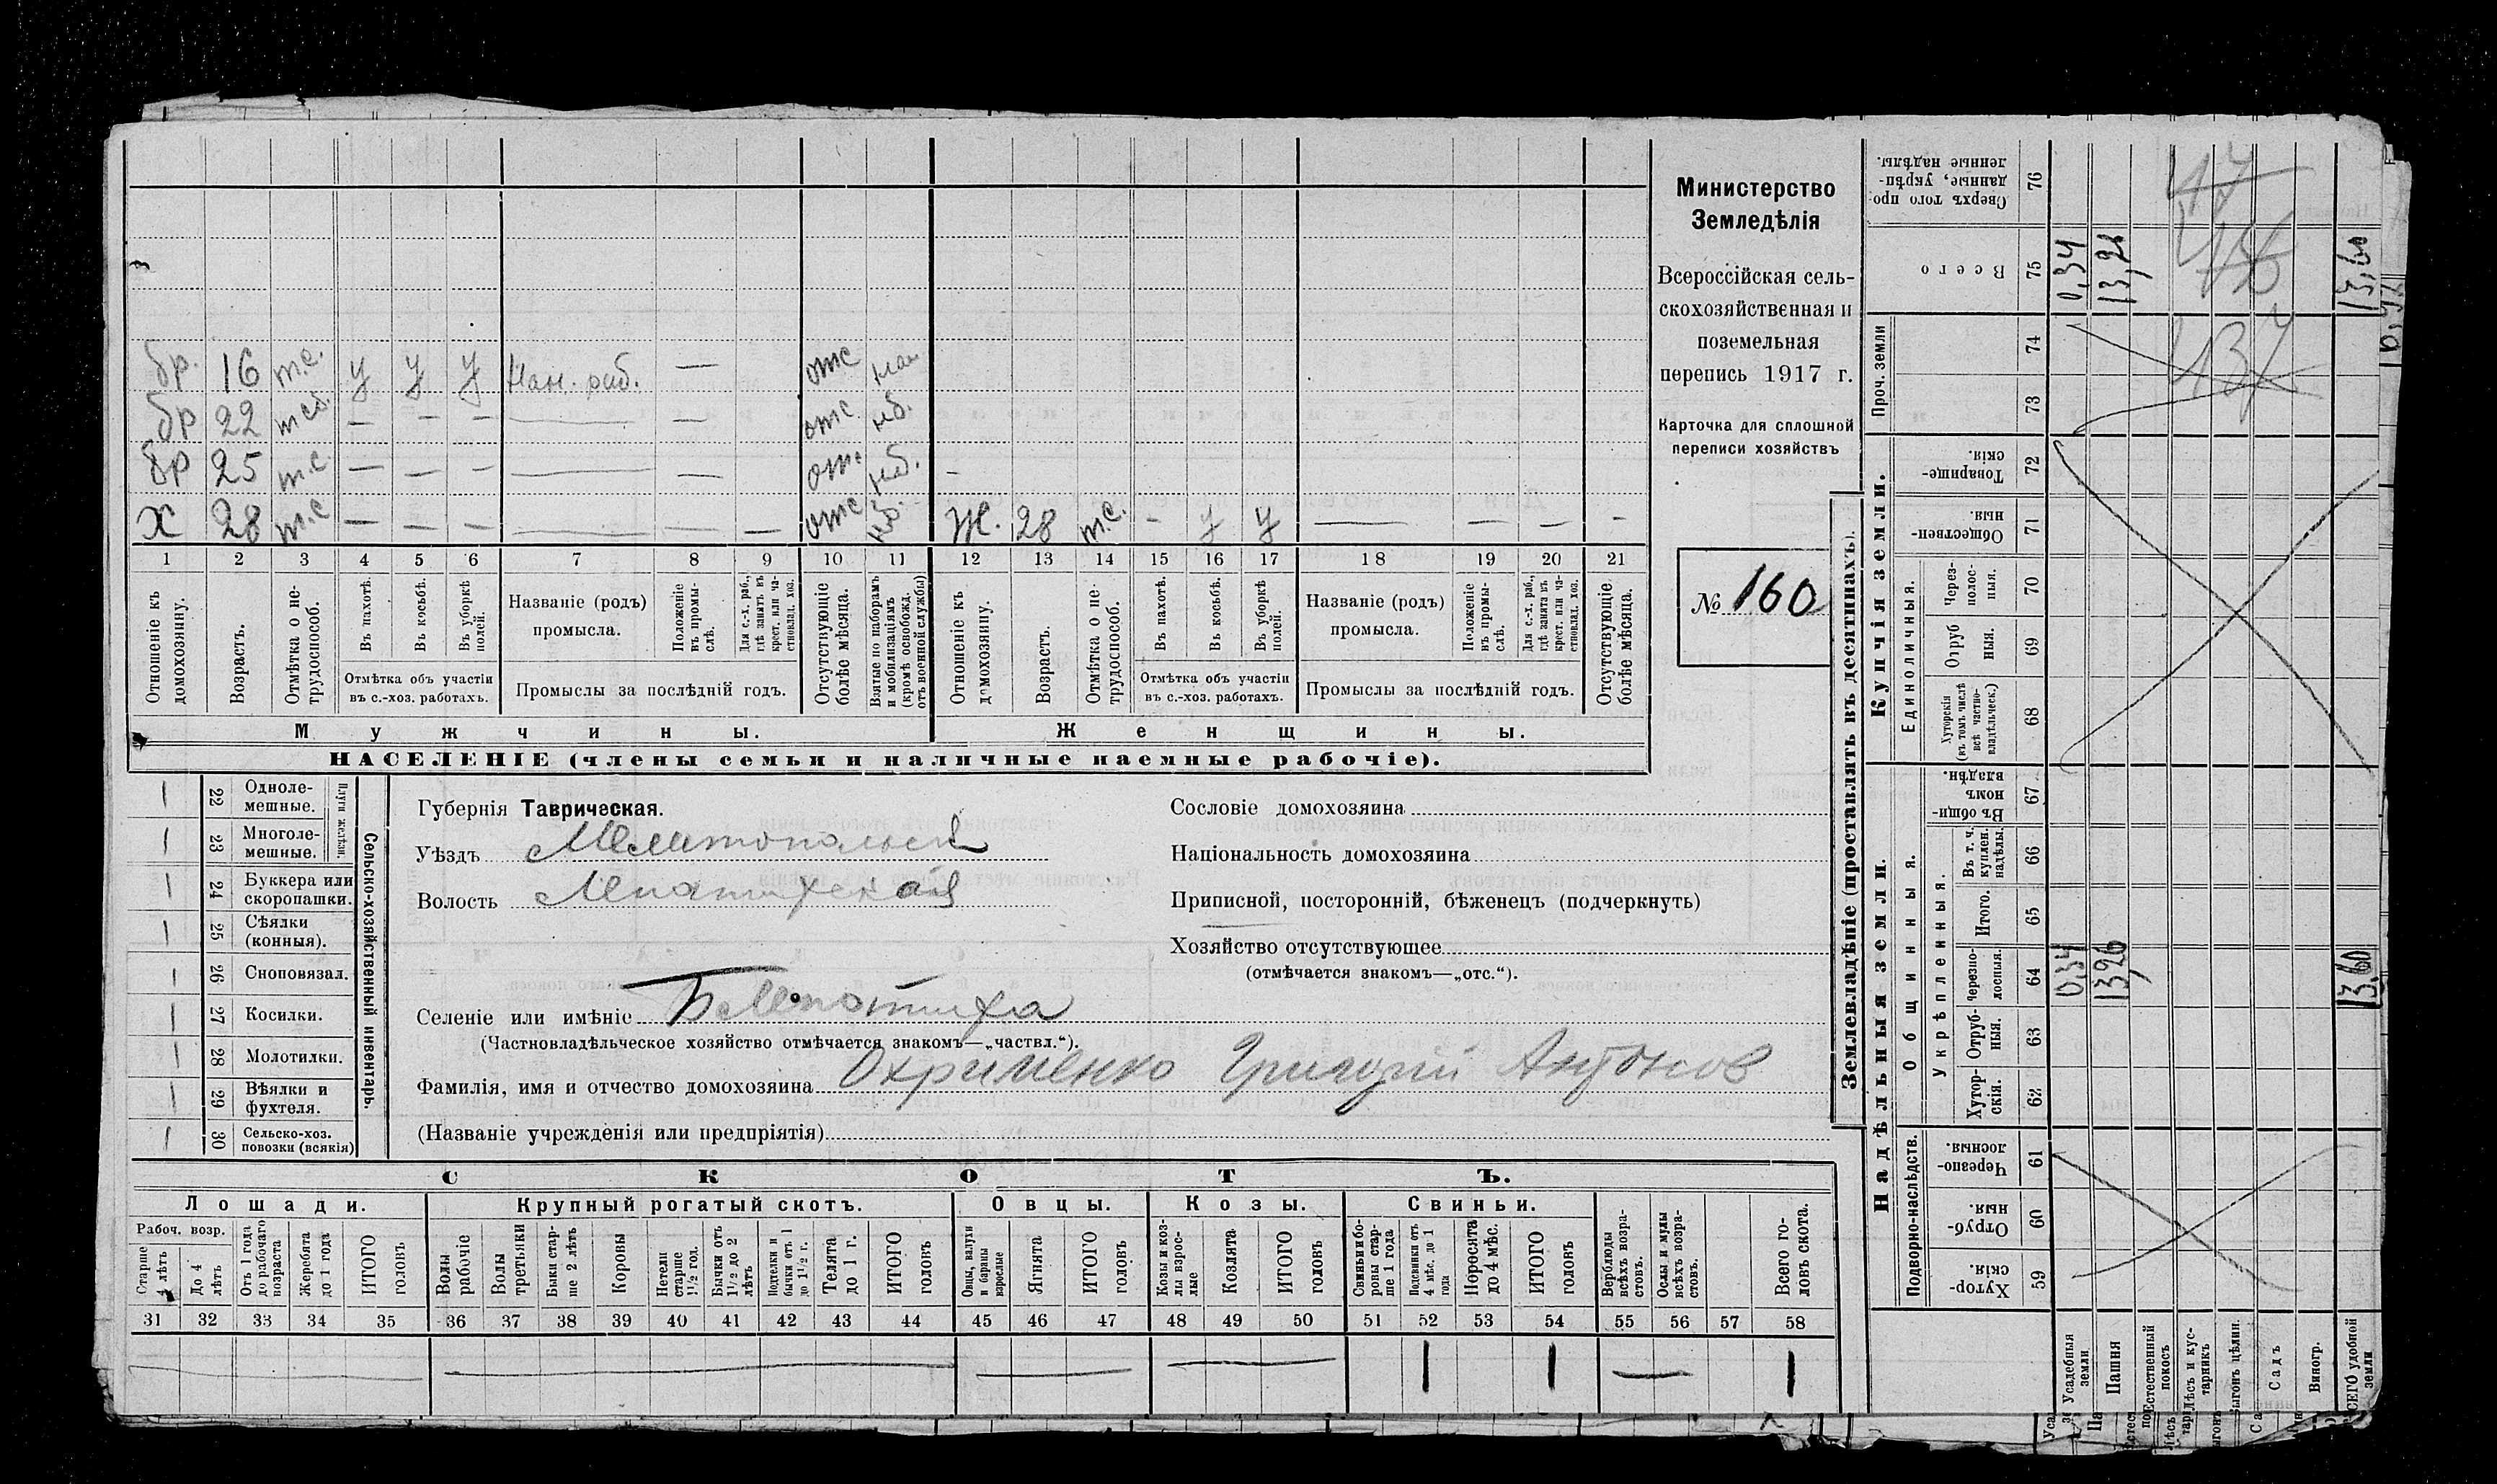 бр. 16 т.с. у у у Нан. раб. — отс
бр 22 — — — — — отс мб.
бр 25 т.с. — — — — — отс мб.
Х 28 т.с — — — — — — отс мб. Ж. 28 т.с. - у у — — — -
1 2 3 4 5 6 7 8 9 10 11 12 13 14 15 16 17 18 19 20 21
Отношеніе къ домохозяину.
Возрастъ.
Отмѣтка о не-
трудоспособ.
Въ пахотѣ.
Въ косьбѣ.
Въ уборкѣ
полей.
Отмѣтка объ участіи
въ с.-хоз. работахъ.
Названіе (родъ)
промысла.
Положеніе
въ промы-
слѣ.
Для с.-х. раб.,
гдѣ занятъ въ
крест. или ча-
стновлад. хоз.
Промыслы за послѣдній годъ.
Отсутствующіе
болѣе мѣсяца.
Взятые по наборамъ
и мобилизаціямъ
(кромѣ освобожд.
отъ военной службы)
Отношеніе къ
домохозяину.
Возрастъ.
Отмѣтка о не-
трудоспособ.
Въ пахотѣ.
Въ косьбѣ.
Въ уборкѣ
полей.
Отмѣтка объ участіи
въ с.-хоз. работахъ.
Названіе (родъ)
промысла.
Положеніе
въ промы-
слѣ.
Для с.-х. раб.,
гдѣ занята въ
крест. или ча-
стновлад. хоз.
Промыслы за послѣдній годъ.
Отсутствующіе
болѣе мѣсяца.
Мужчины.
Женщины.
НАСЕЛЕНІЕ (члены семьи и наличные наемные рабочіе).
Министерство
Земледѣлія
Всероссійская сель-
скохозяйственная и
поземельная
перепись 1917 г.
Карточка для сплошной
переписи хозяйствъ
№ 160
22 Одноле-
мешные.
23 Многоле-
мешные.
Плуги желѣзн.
24 Буккера или
скоропашки.
25 Сѣялки
(конныя).
26 Сноповязал.
27 Косилки.
28 Молотилки.
29 Вѣялки и
фухтеля.
30 Сельско-хоз.
повозки (всякія)
Сельско-хозяйственный инвентарь.
Губернія Таврическая.
Уѣздъ Мелитопольск
Волость Лепатихская
Селеніе или имѣніе Б Лепатиха
(Частновладѣльческое хозяйство отмѣчается знакомъ—„частвл.“).
Фамилія, имя и отчество домохозяина Охрименко Григорій Антонов
(Названіе учрежденія или предпріятія)
Сословіе домохозяина
Національность домохозяина
Приписной, посторонній, бѣженецъ (подчеркнуть)
Хозяйство отсутствующее
(отмѣчается знакомъ—„отс.“).
СКОТЪ.
Лошади.
Крупный рогатый скотъ.
Овцы.
Козы.
Свиньи.
Рабоч. возр.
Старше
4 лѣтъ
До 4
лѣтъ
Отъ 1 года
до рабочаго
возраста
Жеребята
до 1 года
ИТОГО
головъ
Волы
рабочіе
Волы
третьяки
Быки стар-
ше 2 лѣтъ
Коровы
Нетели
старше
1½ год.
Бычки отъ
1½ до 2
лѣтъ
Подтелки и
бычки отъ 1
до 1½ г.
Телята
до 1 г.
ИТОГО
головъ
Овцы, валухи
и бараны
взрослые
Ягнята
ИТОГО
головъ
Козы и коз-
лы взрос-
лые
Козлята
ИТОГО
головъ
Свиньи и бо-
ровы стар-
ше 1 года
Подсвинки отъ
4 мѣс. до 1
года
Поросята
до 4 мѣс.
ИТОГО
головъ
Верблюды
всѣхъ возра-
стовъ.
Ослы и мулы
всѣхъ возра-
стовъ.
Всего го-
ловъ скота.
31 32 33 34 35 36 37 38 39 40 41 42 43 44 45 46 47 48 49 50 51 52 53 54 55 56 57 58
Землевладѣніе (проставлять въ десятинахъ).
Сверхъ того про
данные, укрѣп-
ленные надѣлы.
76
Всего
75
0,34
13,26
13,60
47
Проч. земли
74
73
437
Купчія земли.
Товарище-
скія.
72
Обществен-
ныя.
71
Единоличныя.
Через-
полос-
ныя.
70
Отруб
ныя.
69
Хуторскія
(въ томъ числѣ
всѣ частно-
владѣльческ.)
68
Надѣльныя земли.
Общинныя.
Въ общи-
номъ
владѣн.
67
Укрѣпленныя.
Въ т. ч.
куплен.
надѣлы.
66
Итого.
65
Черезпо-
лосныя.
64
0,34
13,26
13,60
Отруб-
ныя.
63
Хутор-
скія.
62
Подворно-наслѣдств.
Черезпо-
лосныя
61
Отруб-
ныя
60
Хутор-
скія.
59
Усадебныя
земли
Пашня
Естественный
покосъ
Лѣсъ и кус-
тарникъ
Выгонъ цѣлин.
Садъ
Виногр.
ВСЕГО удобной
земли